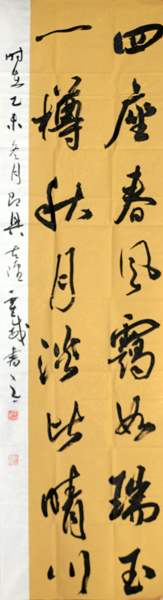 四座春风霭如瑞玉
一樽秋月淡比晴川
时在乙未冬月即兴